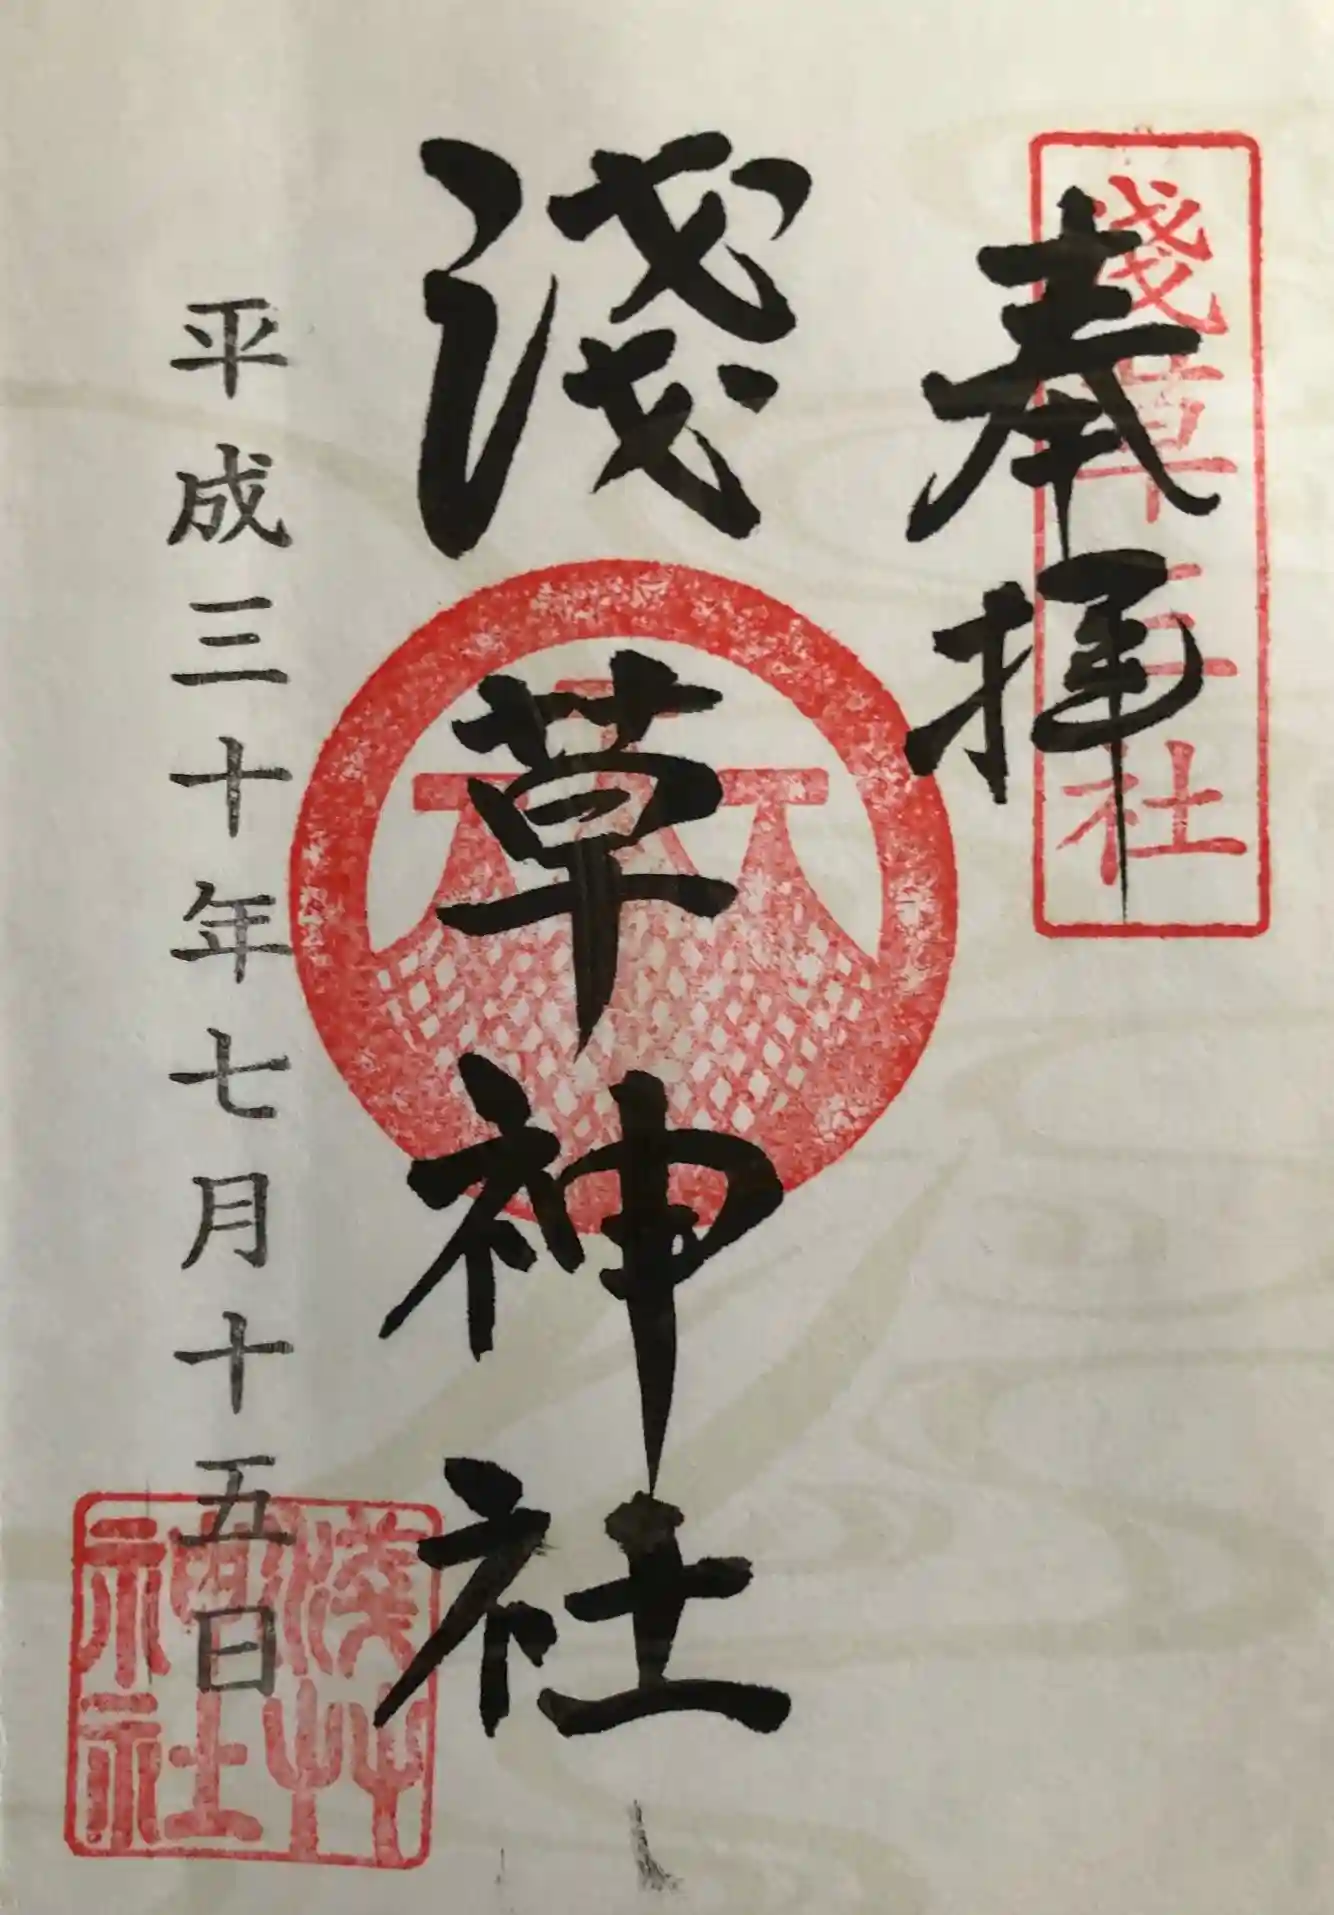 奉拝
淺草三社
淺草神社
平成三十年七月十五日
淺艸神社